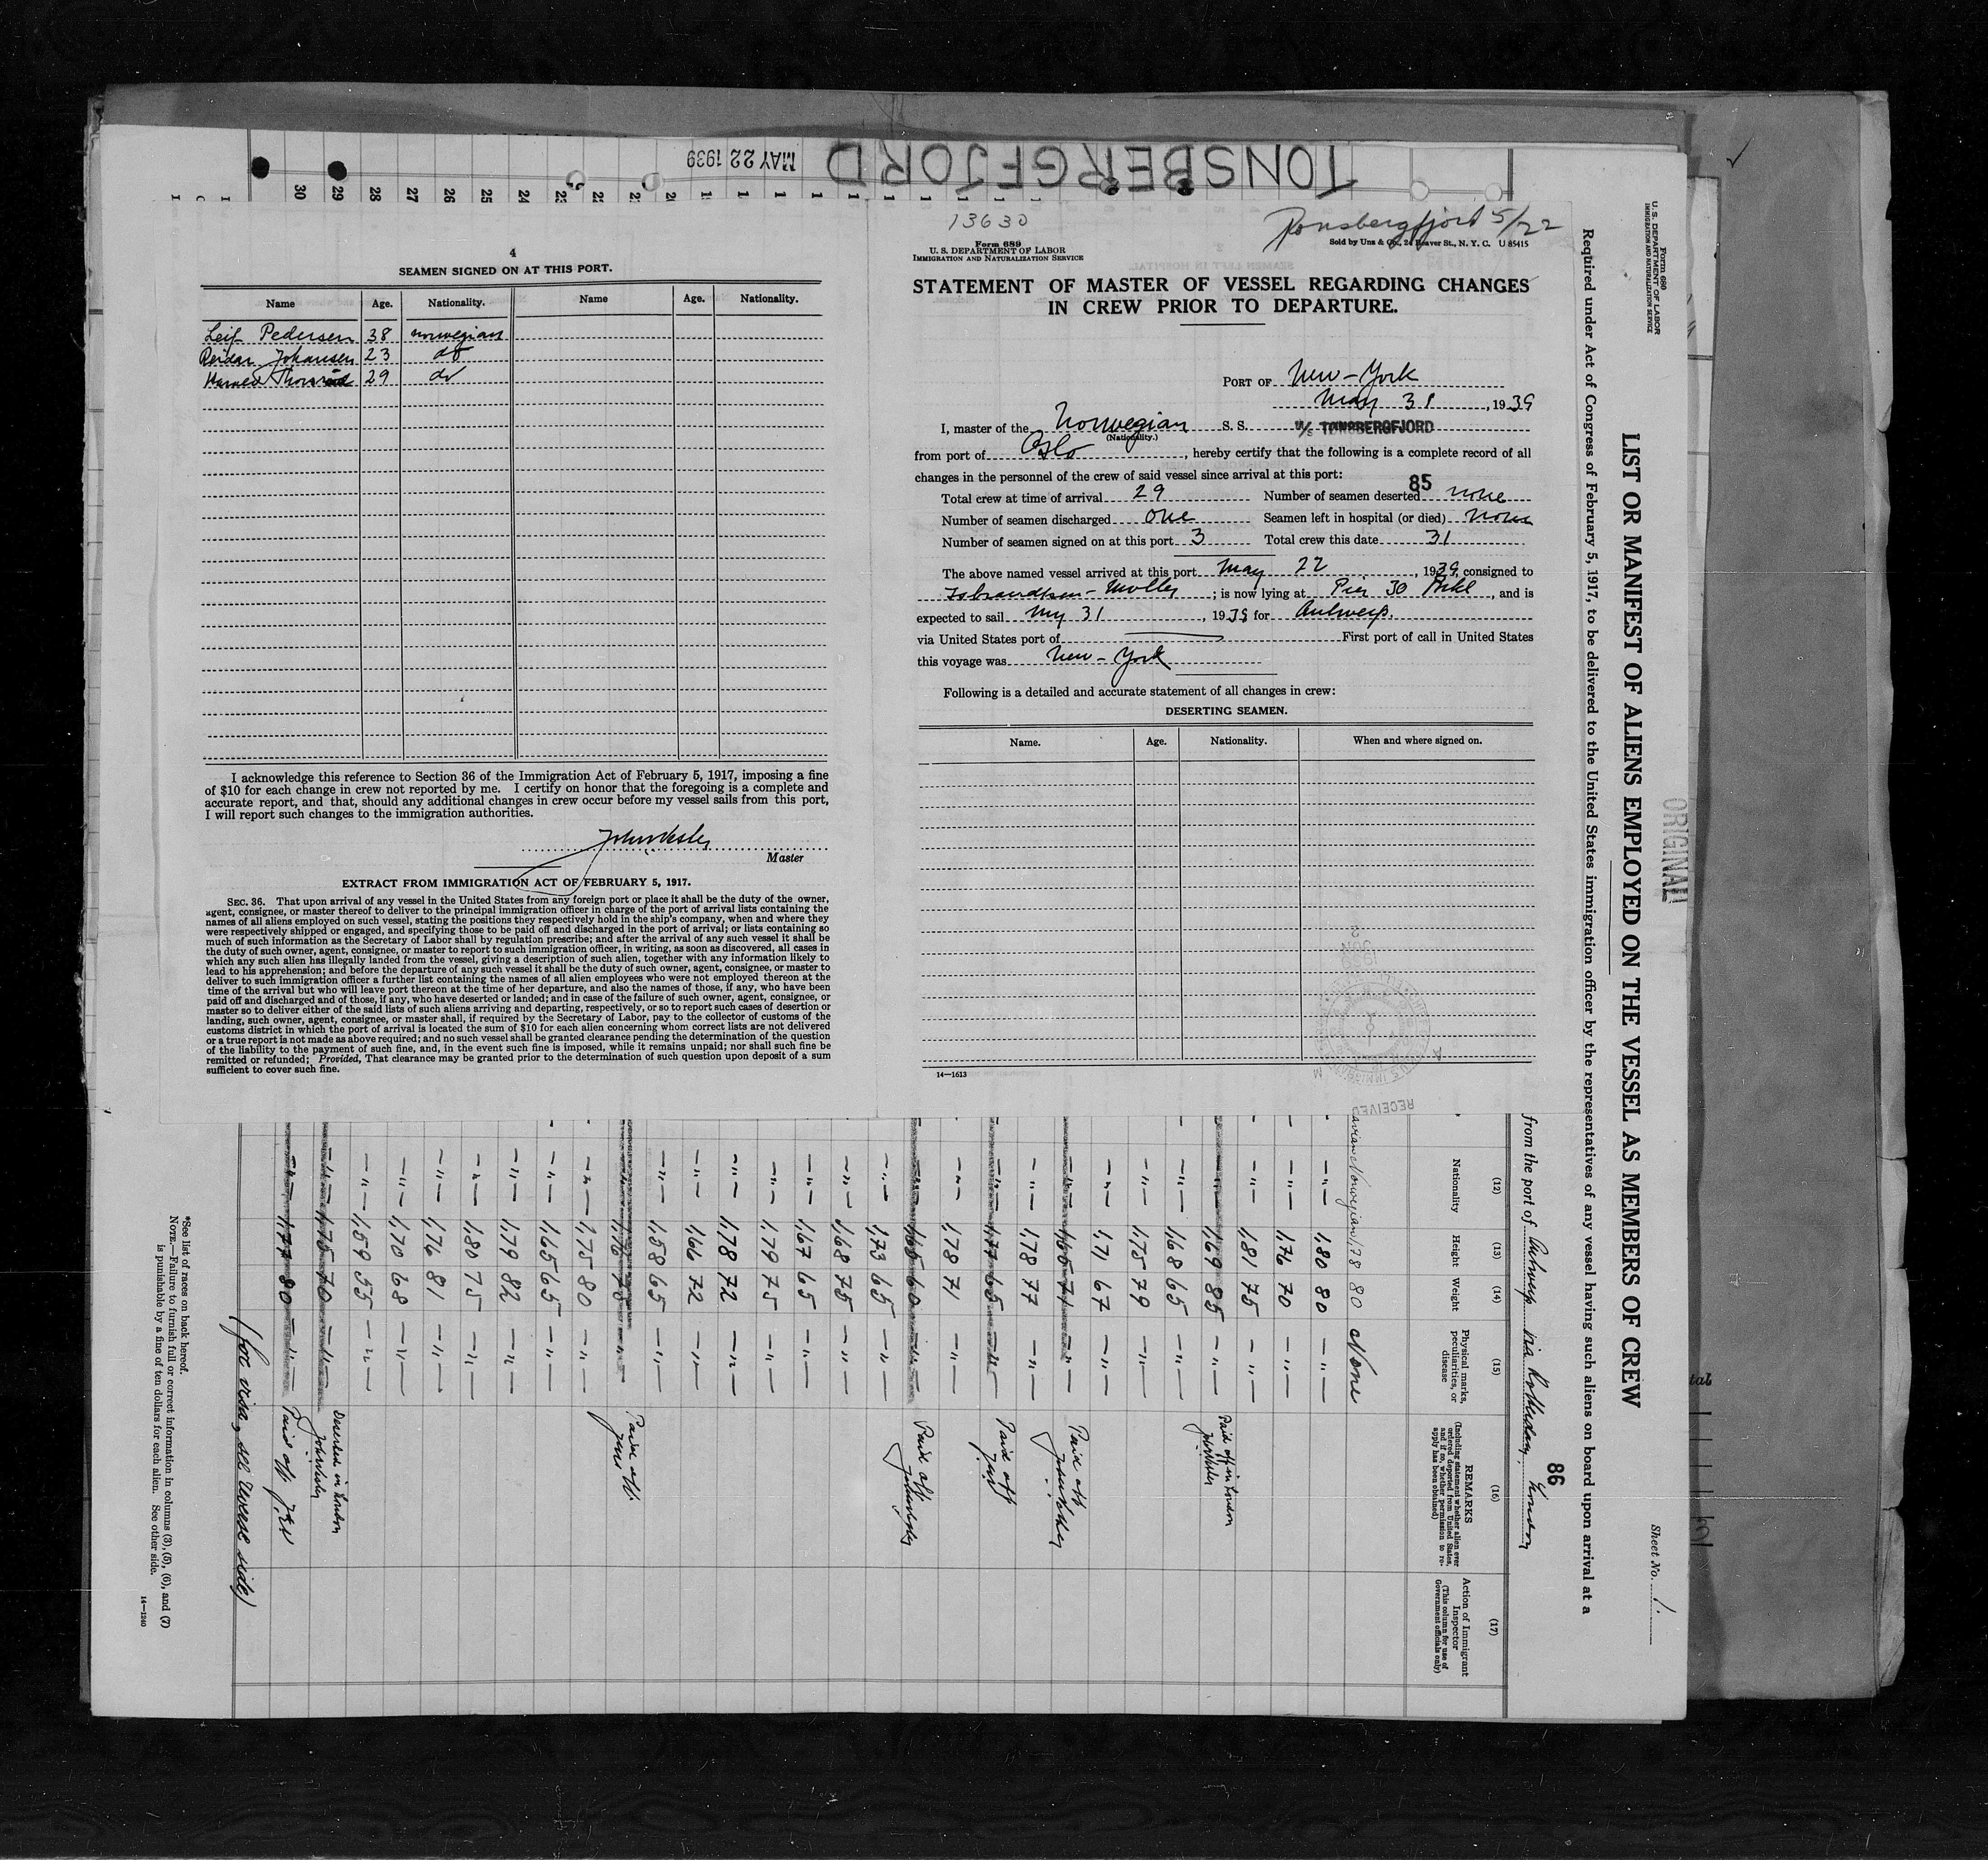 TONSBERGFJORD
MAY 22 1939
30 29 28 27 26 25 24
4
SEAMEN SIGNED ON AT THIS PORT.
Name Age. Nationality. Name Age. Nationality.
Leif Pedersen 38 norwegian
Reidar Johansen 23 do
Harald 29 do
I acknowledge this reference to Section 36 of the Immigration Act of February 5, 1917, imposing a fine
of $10 for each change in crew not reported by me. I certify on honor that the foregoing is a complete and
accurate report, and that, should any additional changes in crew occur before my vessel sails from this port,
I will report such changes to the immigration authorities.
Master
EXTRACT FROM IMMIGRATION ACT OF FEBRUARY 5, 1917.
SEC. 36. That upon arrival of any vessel in the United States from any foreign port or place it shall be the duty of the owner,
agent, consignee, or master thereof to deliver to the principal immigration officer in charge of the port of arrival lists containing the
names of all aliens employed on such vessel, stating the positions they respectively hold in the ship's company, when and where they
were respectively shipped or engaged, and specifying those to be paid off and discharged in the port of arrival; or lists containing so
much of such information as the Secretary of Labor shall by regulation prescribe; and after the arrival of any such vessel it shall be
the duty of such owner, agent, consignee, or master to report to such immigration officer, in writing, as soon as discovered, all cases in
which any such alien has illegally landed from the vessel, giving a description of such alien, together with any information likely to
lead to his apprehension; and before the departure of any such vessel it shall be the duty of such owner, agent, consignee, or master to
deliver to such immigration officer a further list containing the names of all alien employees who were not employed thereon at the
time of the arrival but who will leave port thereon at the time of her departure, and also the names of those, if any, who have been
paid off and discharged and of those, if any, who have deserted or landed; and in case of the failure of such owner, agent, consignee, or
master so to deliver either of the said lists of such aliens arriving and departing, respectively, or so to report such cases of desertion or
landing, such owner, agent, consignee, or master shall, if required by the Secretary of Labor, pay to the collector of customs of the
customs district in which the port of arrival is located the sum of $10 for each alien concerning whom correct lists are not delivered
or a true report is not made as above required; and no such vessel shall be granted clearance pending the determination of the question
of the liability to the payment of such fine, and, in the event such fine is imposed, while it remains unpaid; nor shall such fine be
remitted or refunded; Provided, That clearance may be granted prior to the determination of such question upon deposit of a sum
sufficient to cover such fine.
13630
Tonsbergfjord 5/22
Form 689
U. S. DEPARTMENT OF LABOR
IMMIGRATION AND NATURALIZATION SERVICE
Sold by Unz & Co., 24 Beaver St., N. Y. C. U 85415
STATEMENT OF MASTER OF VESSEL REGARDING CHANGES
IN CREW PRIOR TO DEPARTURE.
PORT OF New-York
May 31, 1939
I, master of the Norwegian S. S. M/S TØNSBERGFJORD
(Nationality.)
from port of Oslo, hereby certify that the following is a complete record of all
changes in the personnel of the crew of said vessel since arrival at this port:
85
Total crew at time of arrival 29 Number of seamen deserted none
Number of seamen discharged one Seamen left in hospital (or died) none
Number of seamen signed on at this port 3 Total crew this date 31
The above named vessel arrived at this port May 22, 1939, consigned to
Isbrandtsen-Moller; is now lying at Pier 30 Bkl, and is
expected to sail My 31, 1939 for Antwerp.
via United States port of First port of call in United States
this voyage was New-York
Following is a detailed and accurate statement of all changes in crew:
DESERTING SEAMEN.
Name. Age. Nationality. When and where signed on.
14—1613
RECEIVED
Form 680
U. S. DEPARTMENT OF LABOR
IMMIGRATION AND NATURALIZATION SERVICE
ORIGINAL
Sheet No. 1.
LIST OR MANIFEST OF ALIENS EMPLOYED ON THE VESSEL AS MEMBERS OF CREW
Required under Act of Congress of February 5, 1917, to be delivered to the United States immigration officer by the representatives of any vessel having such aliens on board upon arrival at a
86
from the port of Antwerp via Rotterdam, London
(12) (13) (14) (15) (16) (17)
Nationality Height Weight Physical marks, peculiarities, or disease
REMARKS
(Including statement whether alien ever ordered deported from United States, and if so, whether permission to reapply has been obtained)
Action of Immigrant Inspector
(This column for use of Government officials only)
Norwegian 1,78 80 None
—"— 1,80 80 —"—
—"— 1,76 70 —"—
—"— 1,81 75 —"—
—"— 1,69 85 —"— Paid off in London
—"— 1,68 65 —"—
—"— 1,75 79 —"—
—"— 1,71 67 —"—
—"— 1,65 71 —"— Paid off
—"— 1,78 77 —"—
—"— 1,77 65 —"— Paid off
—"— 1,78 71 —"—
—"— 1,65 60 —"— Paid off
—"— 1,73 65 —"—
—"— 1,68 75 —"—
—"— 1,67 65 —"—
—"— 1,79 75 —"—
—"— 1,78 72 —"—
—"— 1,66 72 —"—
—"— 1,58 65 —"—
—"— 1,76 78 —"— Paid off.
—"— 1,75 80 —"—
—"— 1,65 65 —"—
—"— 1,79 82 —"—
—"— 1,80 75 —"—
—"— 1,76 81 —"—
—"— 1,70 68 —"—
—"— 1,59 55 —"—
—"— 1,75 70 —"— Deserted in London
—"— 1,77 80 —"— Paid off
(for visa, see reverse side)
*See list of races on back hereof.
NOTE.—Failure to furnish full or correct information in columns (3), (5), (6), and (7)
is punishable by a fine of ten dollars for each alien. See other side.
14—1240